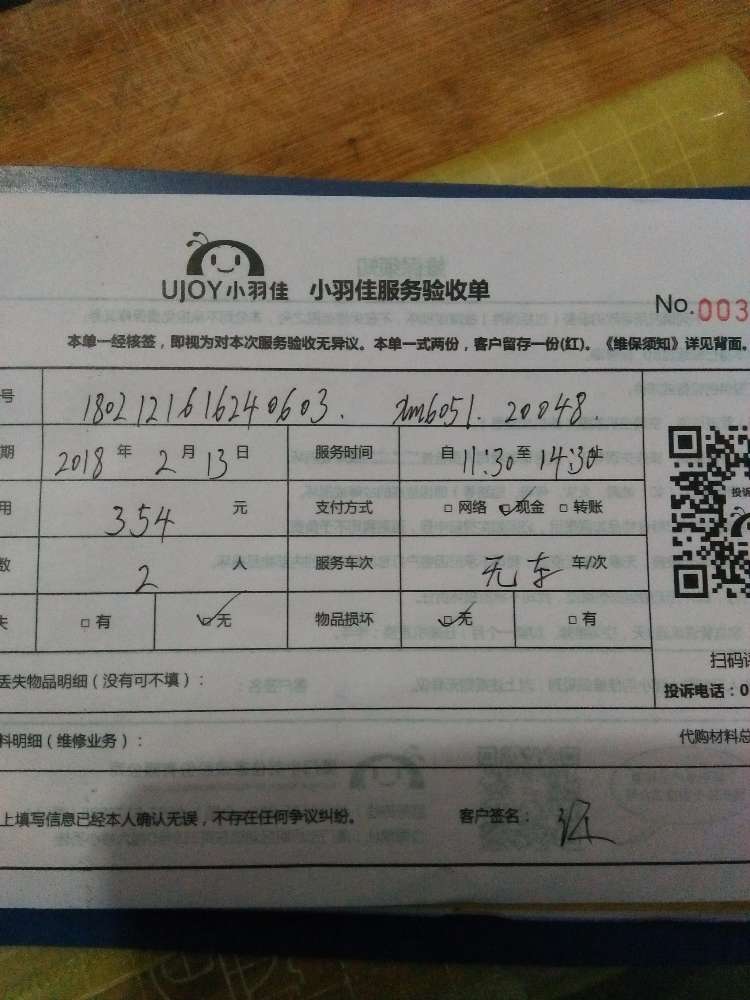 UJOY小羽佳 小羽佳服务验收单
No.003
本单一经核签，即视为对本次服务验收无异议。本单一式两份，客户留存一份(红)。《维保须知》详见背面。
号 1802121616240603. xm6051. 20048.
期 2018 年 2 月 13 日 服务时间 自 11:30 至 14:30 止
用 354 元 支付方式 □ 网络 ☑ 现金 □ 转账
数 2 人 服务车次 无车 车/次
失 □ 有 ☑ 无 物品损坏 ☑ 无 □ 有
扫码
丢失物品明细（没有可不填）：
投诉电话：0
料明细（维修业务）： 代购材料总
上填写信息已经本人确认无误，不存在任何争议纠纷。 客户签名：